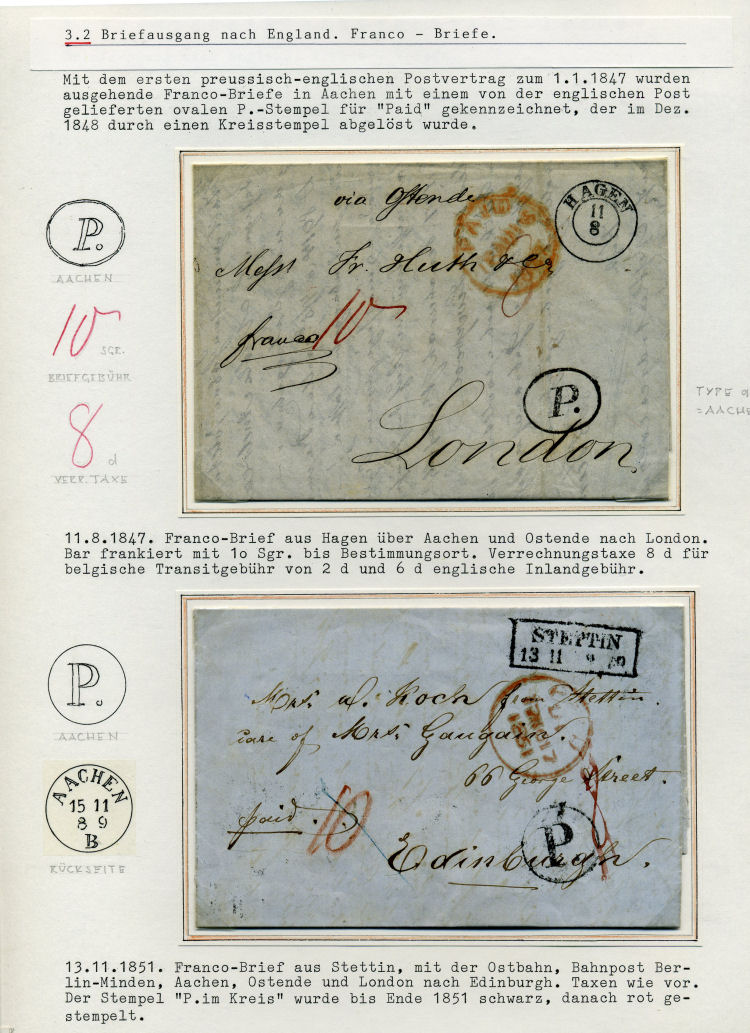 3.2 Briefausgang nach England. Franco - Briefe.
Mit dem ersten preussisch-englischen Postvertrag zum 1.1.1847 wurden
ausgehende Franco-Briefe in Aachen mit einem von der englischen Post
gelieferten ovalen P.-Stempel für "Paid" gekennzeichnet, der im Dez.
1848 durch einen Kreisstempel abgelöst wurde.
P.
AACHEN
10 SGR.
BRIEFGEBÜHR
8 d
VERR. TAXE
via Ostende
HAGEN
11
8
Messr Fr. Huth & Co
franco 10
P.
London
TYPE a
=AACHE
11.8.1847. Franco-Brief aus Hagen über Aachen und Ostende nach London.
Bar frankiert mit 1o Sgr. bis Bestimmungsort. Verrechnungstaxe 8 d für
belgische Transitgebühr von 2 d und 6 d englische Inlandgebühr.
P.
AACHEN
AACHEN
15 11
8 9
B
RÜCKSEITE
STETTIN
13 11
Mrs. A. Koch from Stettin.
care of Mrs. Gaugain.
66 George Street.
paid. 10
8
P.
Edinburgh.
13.11.1851. Franco-Brief aus Stettin, mit der Ostbahn, Bahnpost Ber-
lin-Minden, Aachen, Ostende und London nach Edinburgh. Taxen wie vor.
Der Stempel "P.im Kreis" wurde bis Ende 1851 schwarz, danach rot ge-
stempelt.